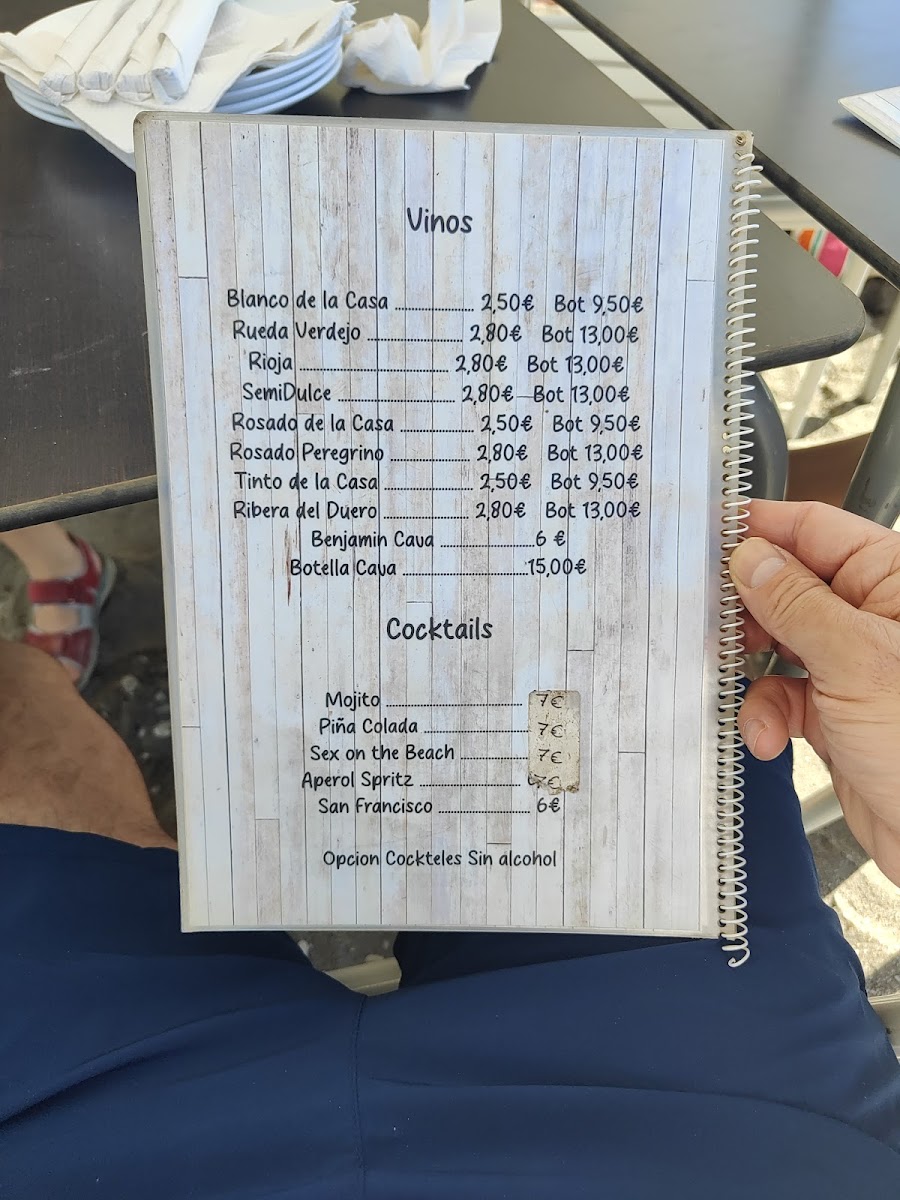 Vinos
Blanco de la Casa ........................ 2,50€ Bot 9,50€
Rueda Verdejo ........................ 2,80€ Bot 13,00€
Rioja ........................ 2,80€ Bot 13,00€
SemiDulce ........................ 2,80€ Bot 13,00€
Rosado de la Casa ........................ 2,50€ Bot 9,50€
Rosado Peregrino ........................ 2,80€ Bot 13,00€
Tinto de la Casa ........................ 2,50€ Bot 9,50€
Ribera del Duero ........................ 2,80€ Bot 13,00€
Benjamin Cava ........................ 6 €
Botella Cava ........................ 15,00€
Cocktails
Mojito ........................ 7€
Piña Colada ........................ 7€
Sex on the Beach ........................ 7€
Aperol Spritz ........................ 7€
San Francisco ........................ 6€
Opcion Cockteles Sin alcohol